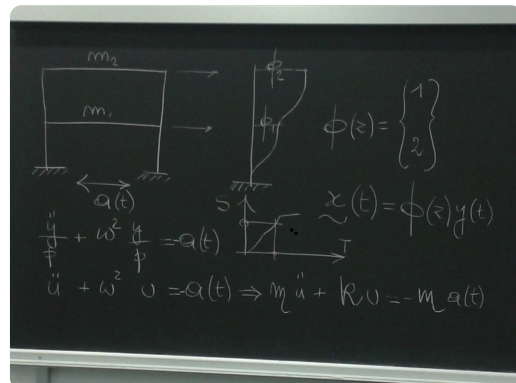 m₂
m₁
a(t)
ϕ₂
ϕ₁
ϕ(z) = { 1 2 }
S
T
x(t) = ϕ(z) y(t)
ÿ/p + ω² y/p = -a(t)
ü + ω² u = -a(t) ⇒ m ü + k u = -m a(t)